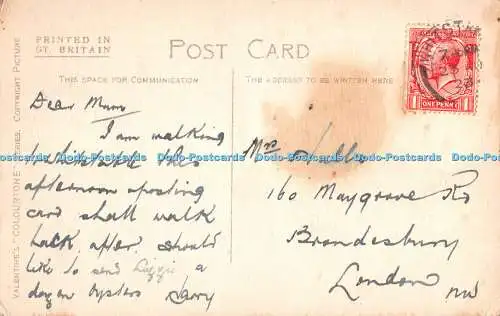 PRINTED IN
GT. BRITAIN
POST CARD
THIS SPACE FOR COMMUNICATION
THE ADDRESS TO BE WRITTEN HERE
VALENTINE'S "COLOURTONE" SERIES. COPYRIGHT PICTURE
Dear Mum
I am walking
to whitstable this
afternoon & posting
card shall walk
back after. should
like to send Lizzie a
dozen oysters Harry
Mrs
160 Maygrove Rd
Brondesbury
London
NW
1 ONE PENNY 1
Dodo-Postcards Dodo-Postcards Dodo-Postcards Dodo-Postcards Dodo-Postcards